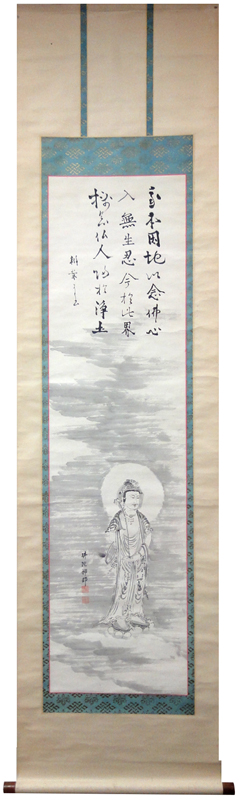 我本因地以念佛心
入無生忍今於此界
摂念仏人帰於浄土